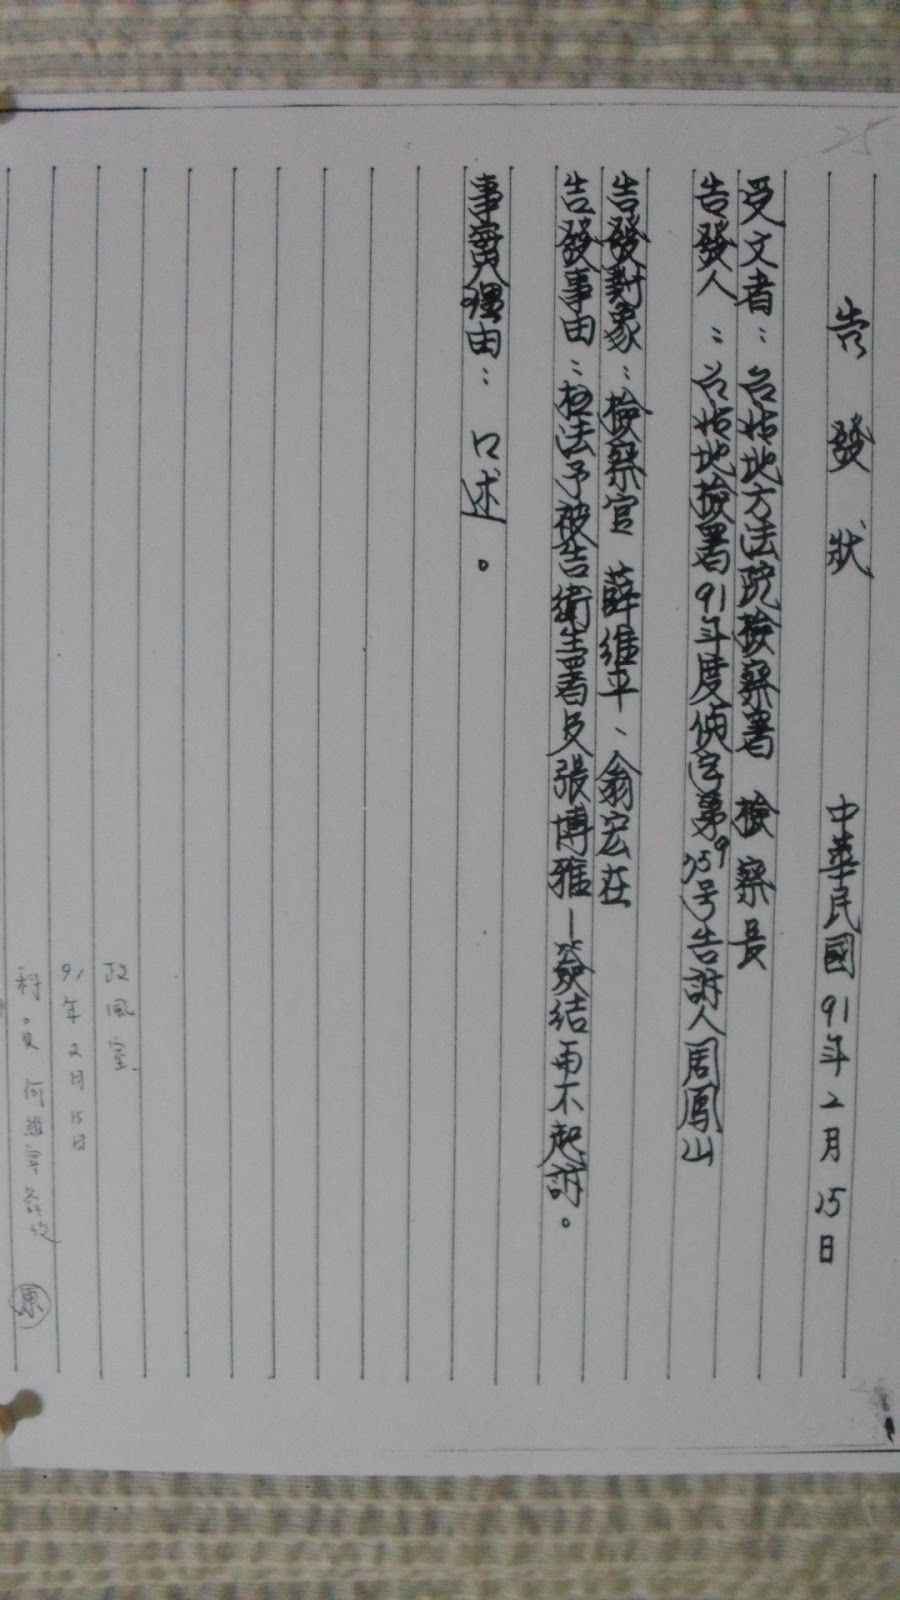 25
告發狀 中華民國91年2月15日
受文者：台北地方法院檢察署 檢察長
告發人：台北地檢署91年度偵字第959号告訴人周鳳山
告發對象：檢察官 薛維平、翁宏在
告發事由：枉法予被告衛生署及張博雅—簽結而不起訴。
事實理由：口述。
政風室
91年2月15日
科員 何維寧簽收 原